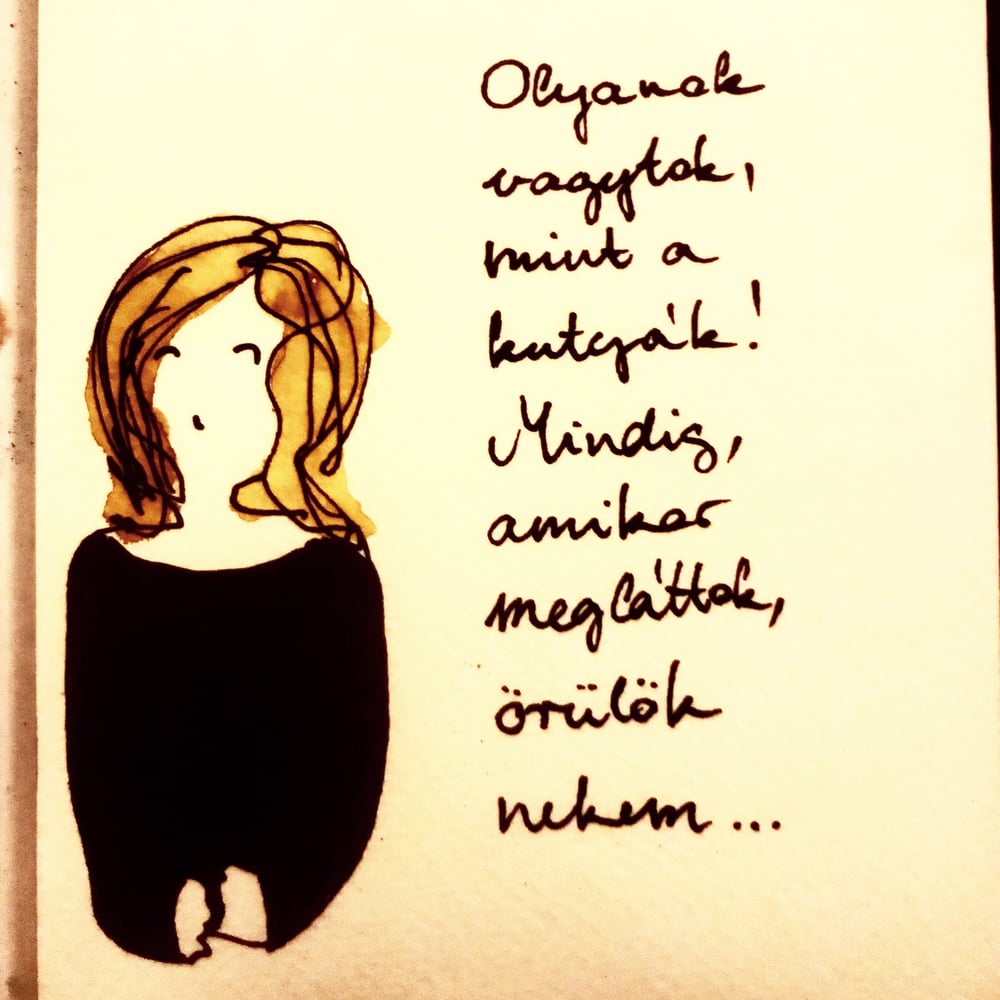 Olyanok
vagytok,
mint a
kutyák!
Mindig,
amikor
megláttok,
örülök
nekem...